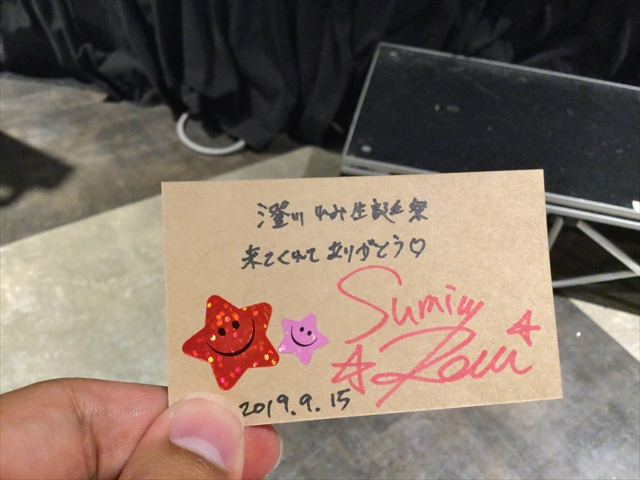 澄川ゆみ生誕祭
来てくれてありがとう♡
Sumiy
2019.9.15